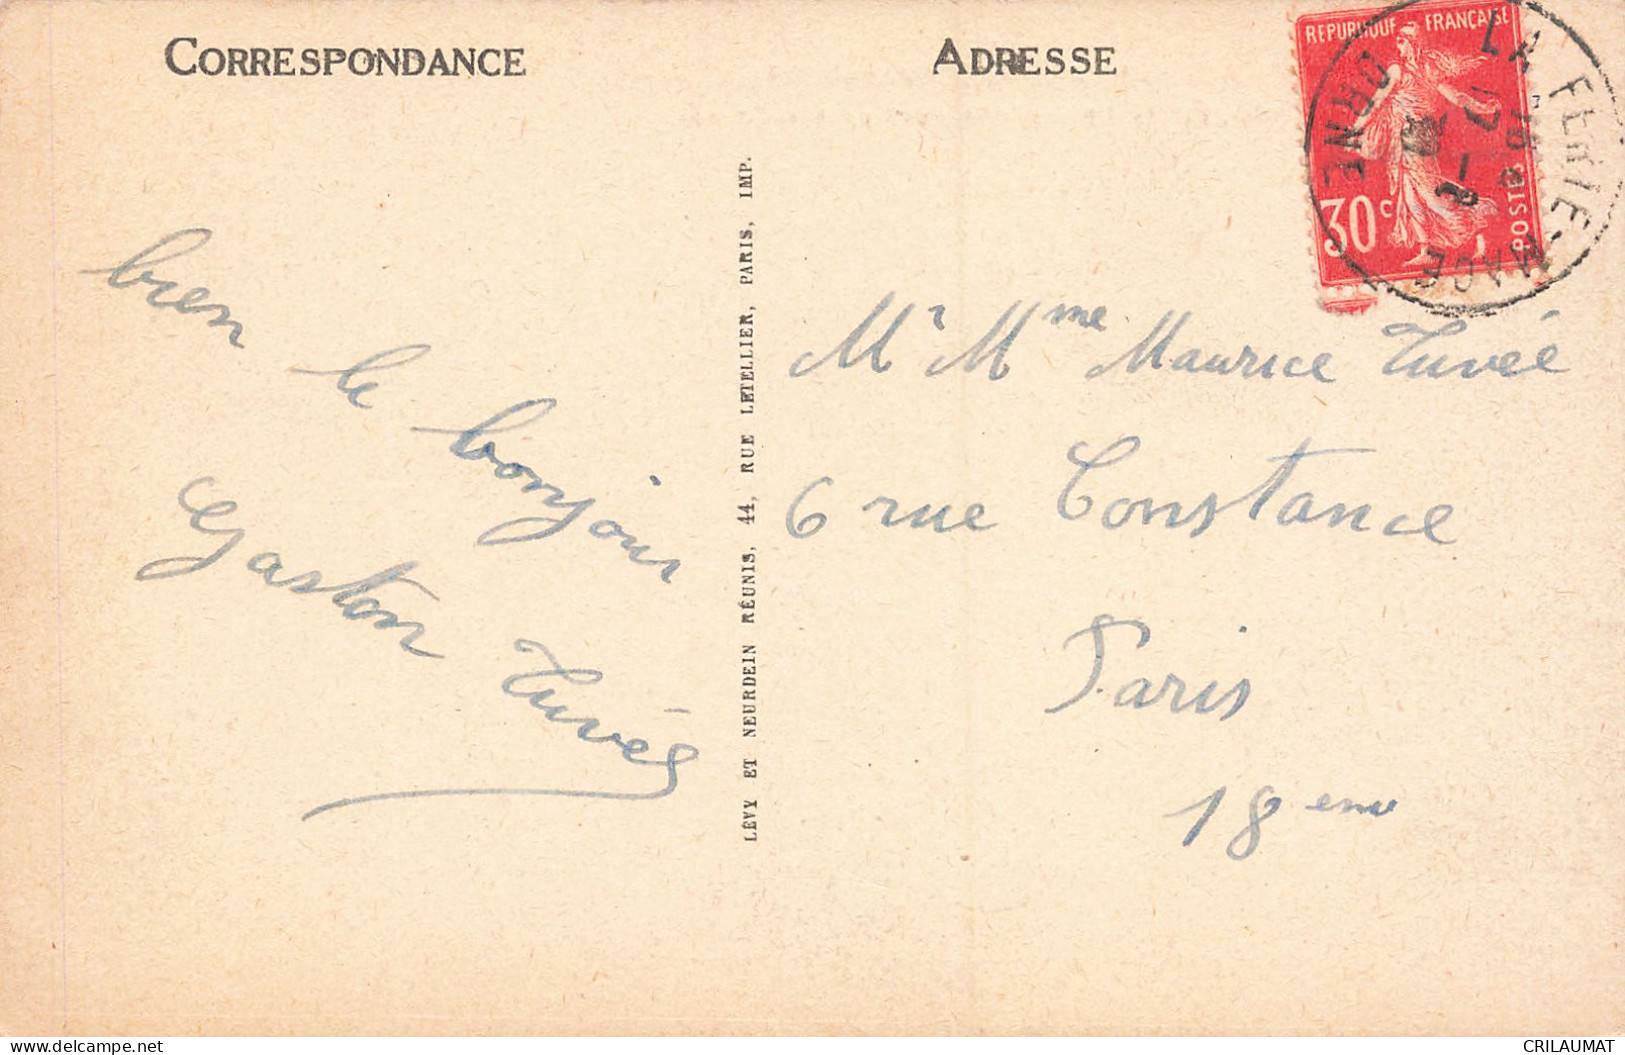 CORRESPONDANCE
ADRESSE
REPUBLIQUE FRANÇAISE
30c
POSTES
LA FERTE-MACE
ORNE
bien le bonjour
Gaston Tuvée
LÉVY ET NEURDEIN RÉUNIS, 44, RUE LETELLIER, PARIS, IMP.
Mr Mme Maurice Tuvée
6 rue Constance
Paris
18 eme
CRILAUMAT
delcampe.net